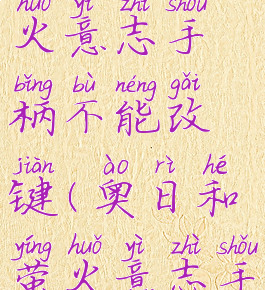 huǒ yì zhì shǒu
火意志手
bǐng bù néng gǎi
柄不能改
jiàn ào rì hé
键(奥日和
yíng huǒ yì zhì shǒu
萤火意志手